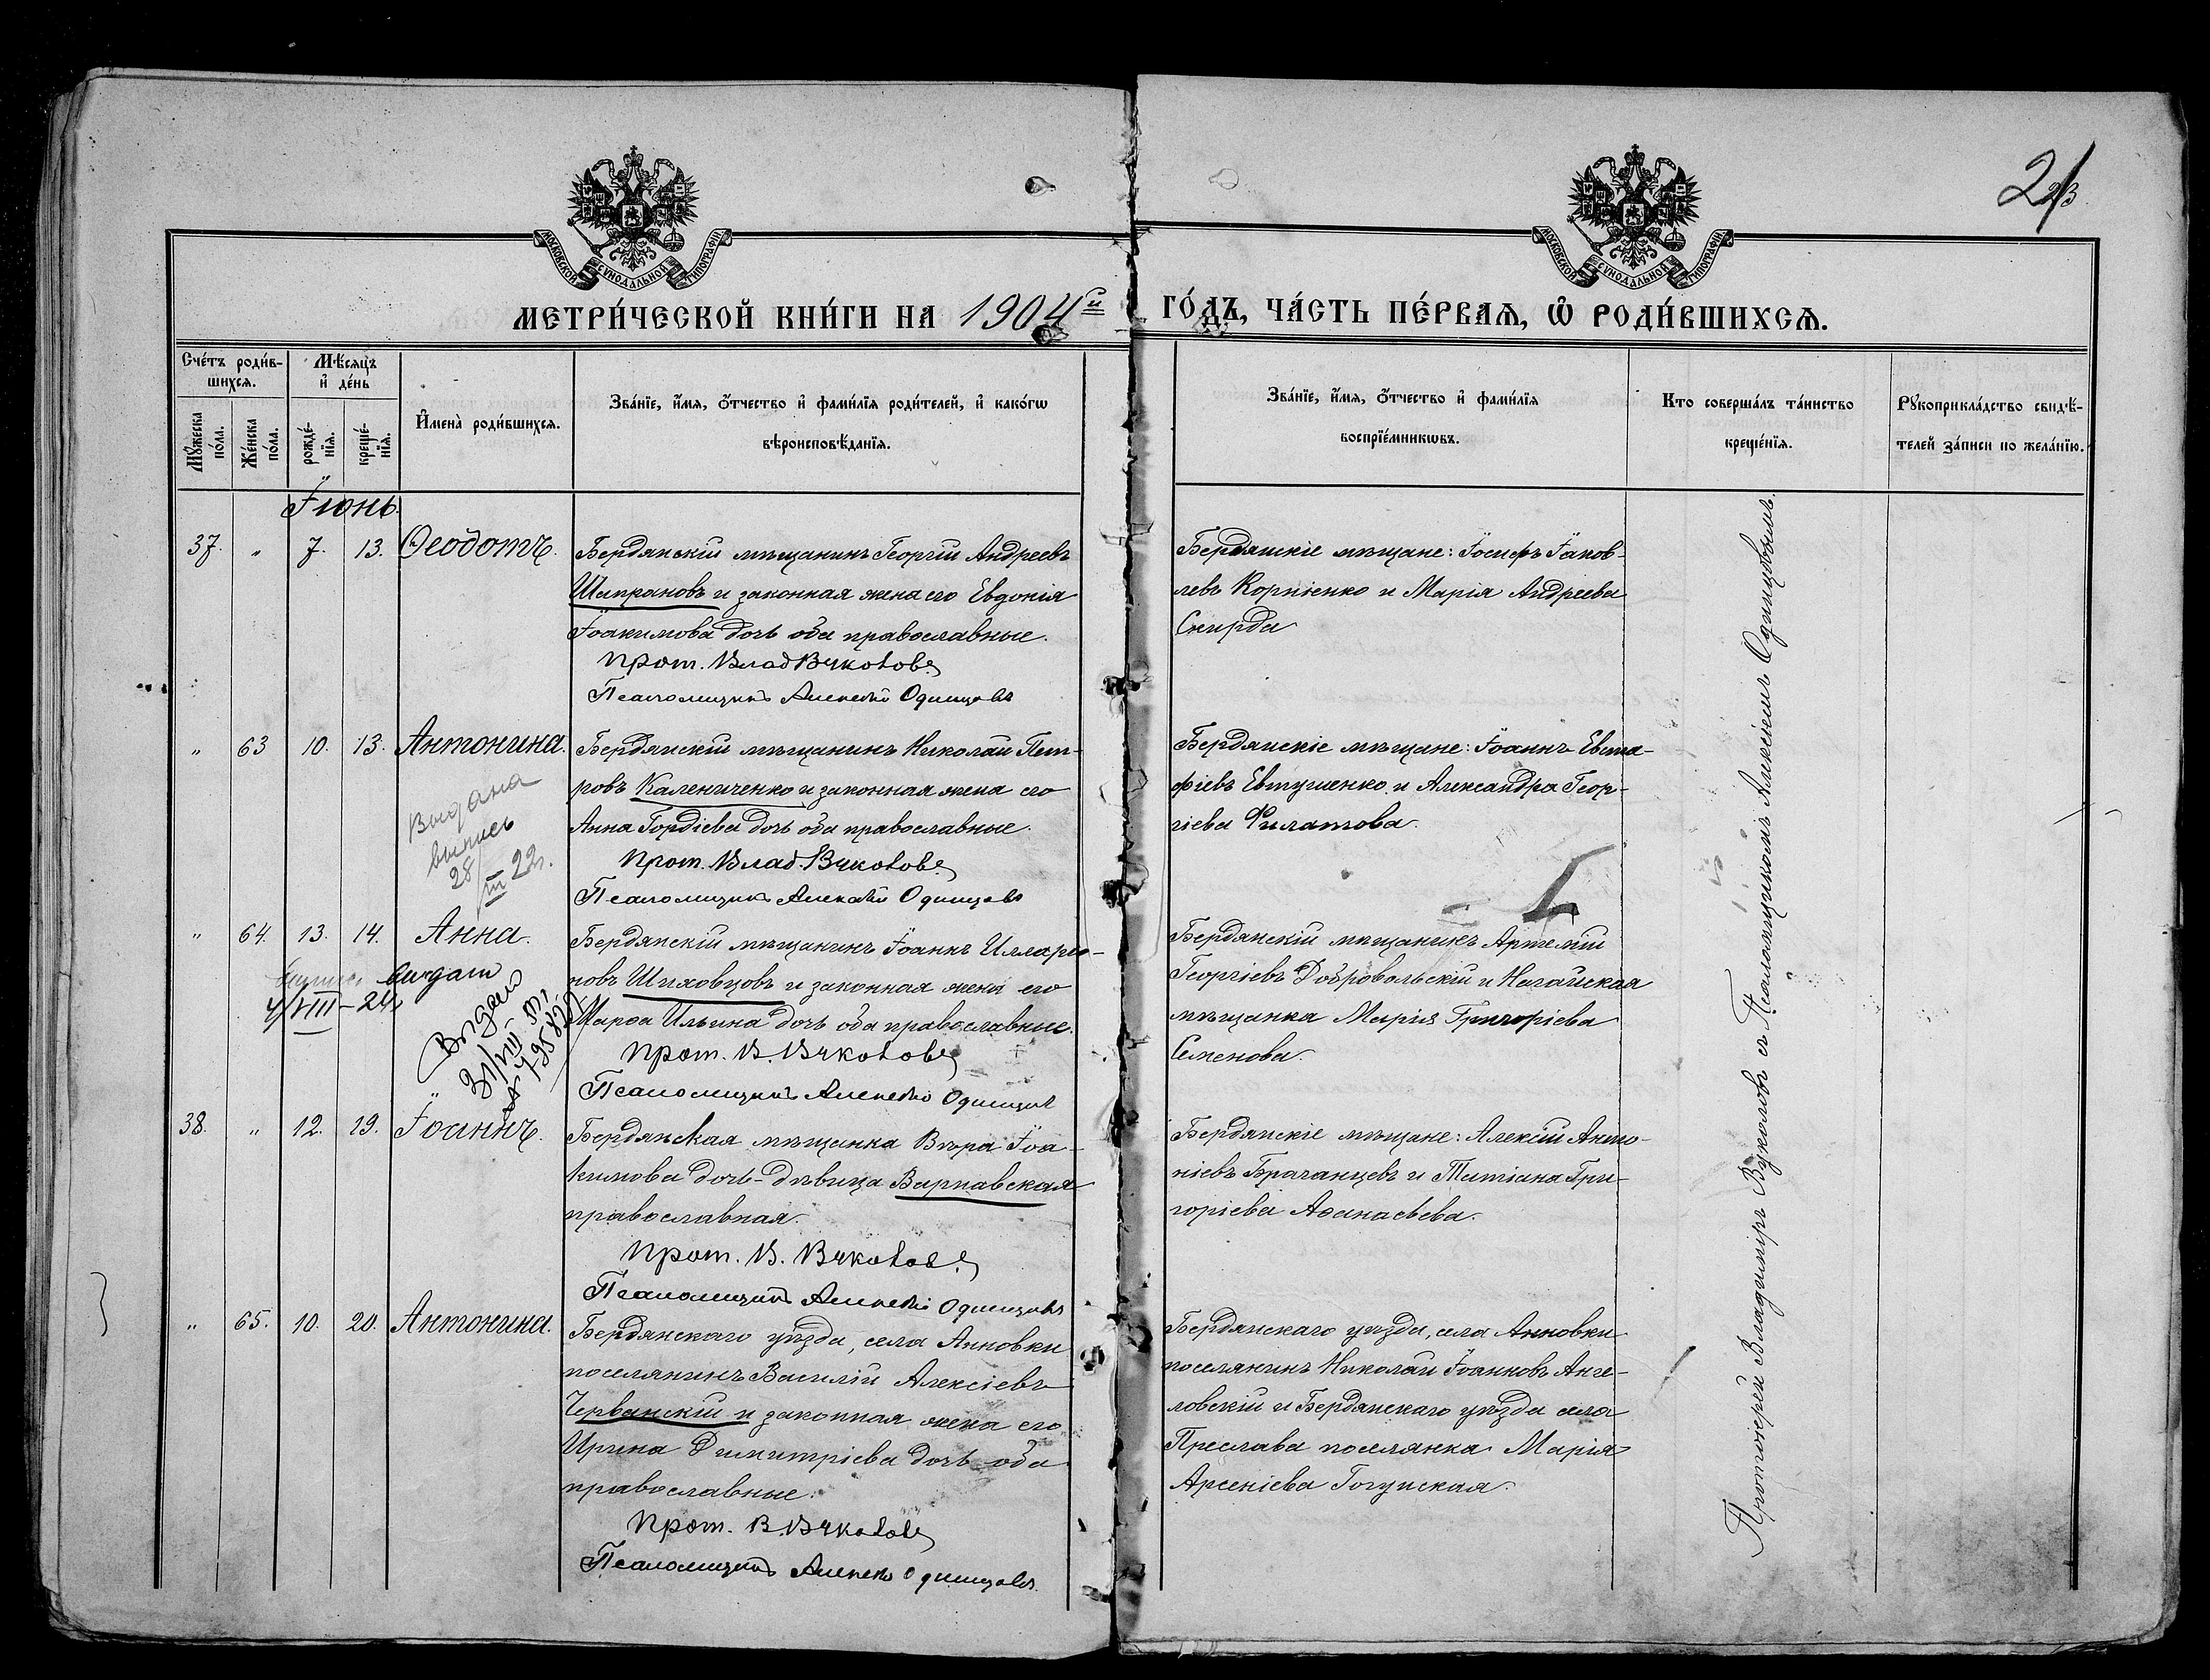 МОСКОВСКОЙ СУНОДАЛЬНОЙ ТИПОГРАФІИ
МОСКОВСКОЙ СУНОДАЛЬНОЙ ТИПОГРАФІИ
МЕТРИ́ЧЕСКОЙ КНИ́ГИ НА 1904й ГО́ДЪ, ЧА́СТЬ ПЕ́РВАЯ, Ѡ РОДИ́ВШИХСЯ.
Сче́тъ роди́в-
шихся.
Мꙋ́жеска по́ла.
Же́нска по́ла.
Мѣ́сяцъ
и҆ де́нь
рожде́-
нїя.
креще́-
нїя.
И҆мена̀ роди́вшихся.
Зва́нїе, и҆́мя, ѻ҆́тчество и҆ фами́лїя роди́телей, и҆ како́гѡ
вѣроисповѣ́данїя.
Зва́нїе, и҆́мя, ѻ҆́тчество и҆ фами́лїя
воспрїе́мникѡвъ.
Кто соверша́лъ та́инство
креще́нїя.
Рꙋкоприкла́дство свидѣ́-
телей за́писи по жела́нїю.
Їюнь.
37. „ 7. 13. Ѳеодотъ.
Бердянскій мѣщанинъ Георгій Андреевъ
Шапрановъ и законная жена его Евдокія
Їоакимова дочь оба православные.
Прот. Влад. Вуколовъ
Псаломщикъ Алексѣй Одинцовъ
Бердянскіе мѣщане: Їосифъ Їаков-
левъ Корніенко и Марія Андреева
Скирда
„ 63 10. 13. Антонина.
Выдана
выпись
28/III 22г.
Бердянскій мѣщанинъ Николай Пет-
ровъ Калениченко и законная жена его
Анна Гордіева дочь оба православные.
Прот. Влад. Вуколовъ
Псаломщикъ Алексѣй Одинцовъ
Бердянскіе мѣщане: Їоаннъ Евста-
фіевъ Евтушенко и Александра Геор-
гіева Филатова.
„ 64. 13. 14. Анна.
выдат
4/VIII-24
Выдано
31/VIII
Бердянскій мѣщанинъ Їоаннъ Илларіо-
новъ Шиховцовъ и законная жена его
Марѳа Ильина дочь оба православные.
Прот. В. Вуколовъ
Псаломщикъ Алексѣй Одинцовъ
Бердянскій мѣщанинъ Артемій
Георгіевъ Добровольскій и Ногайская
мѣщанка Марія Григоріева
Семенова.
38. „ 12. 19. Їоаннъ.
Бердянская мѣщанка Вѣра Їоа-
кимова дочь-дѣвица Варнавская
православная.
Прот. В. Вуколовъ
Псаломщикъ Алексѣй Одинцовъ
Бердянскіе мѣщане: Алексій Анто-
ніевъ Браганцевъ и Татіана Гри-
горіева Аѳанасьева.
„ 65. 10. 20. Антонина.
Бердянскаго уѣзда, села Анновки
поселянинъ Василій Алексіевъ
Черванскій и законная жена его
Ирина Димитріева дочь оба
православные.
Прот. В. Вуколовъ
Псаломщикъ Алексѣй Одинцовъ.
Бердянскаго уѣзда, села Анновки
поселянинъ Николай Їоанновъ Анге-
ловскій и Бердянскаго уѣзда села
Преслава поселянка Марія
Арсеніева Гогунская.
Протоіерей Владиміръ Вуколовъ съ Псаломщикомъ Алексіемъ Одинцовымъ.